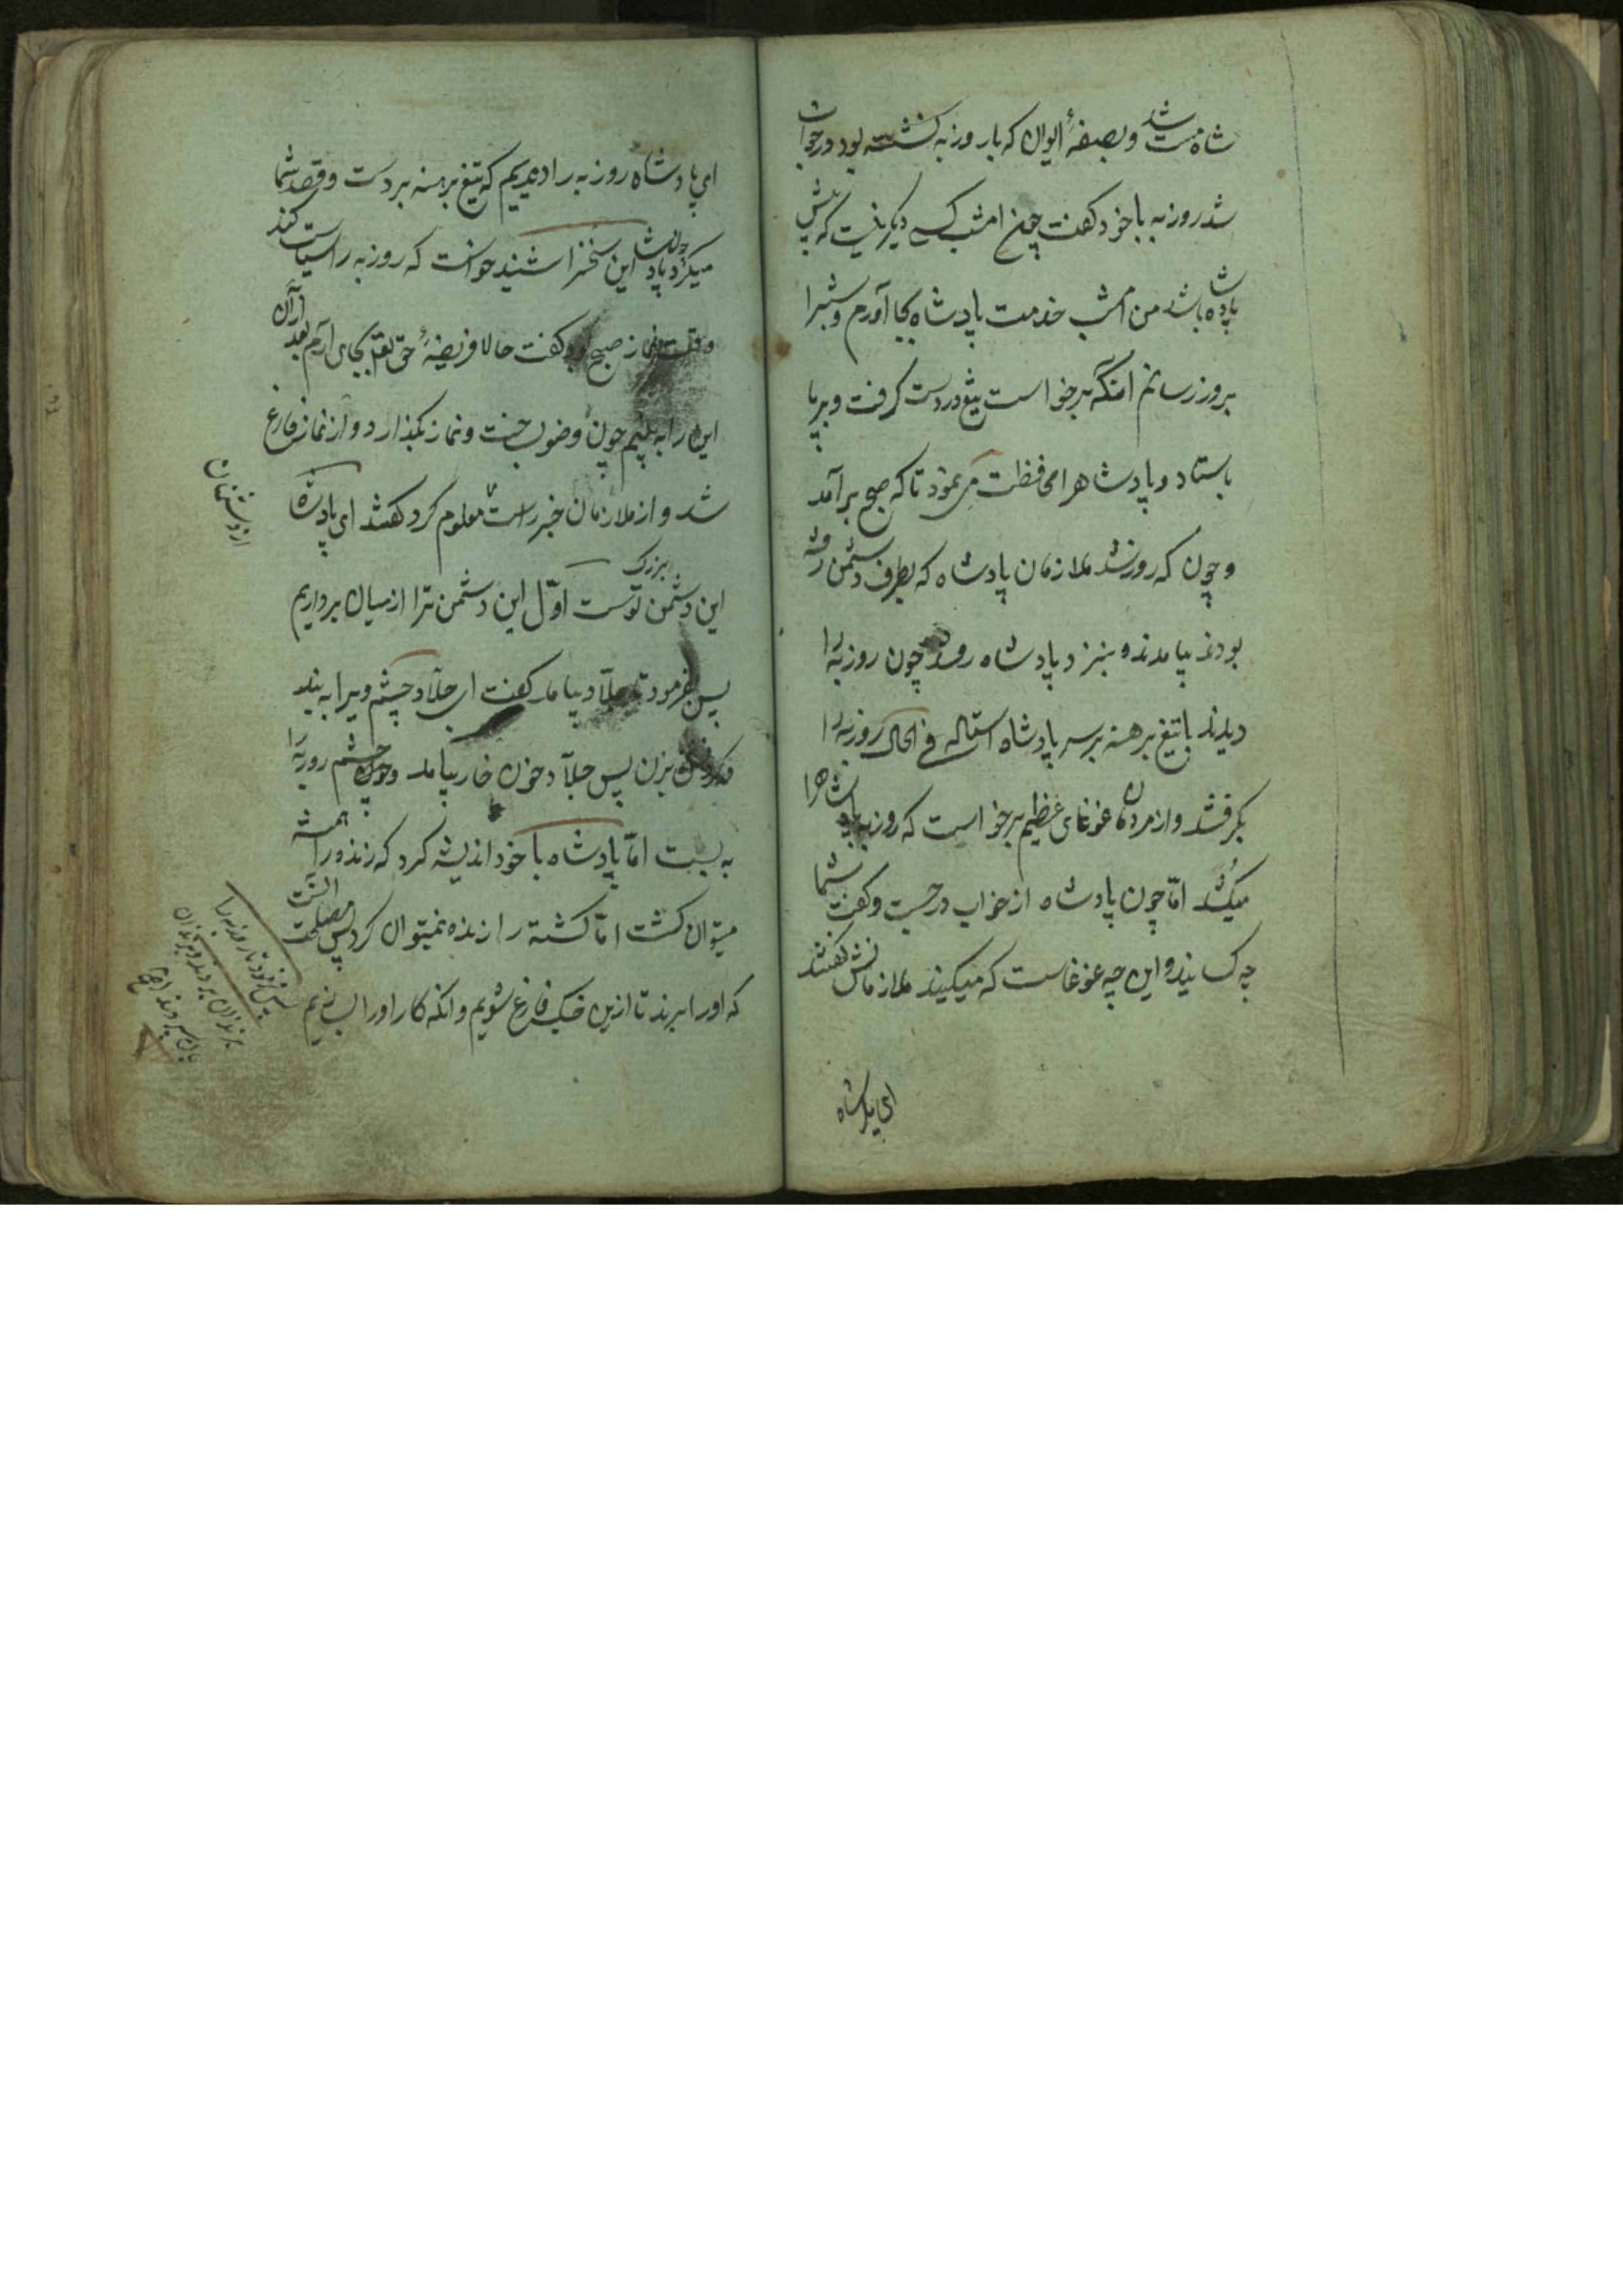 شاه مست شد و بصفهٔ ایوان که با روزبه نشسته بود در خواب
شد روزبه با خود گفت چون امشب کسی دیگر نیست که پیش
پادشاه باشد من امشب خدمت پادشاه بجا آورم و شبرا
بروز رسانم انگه برخواست تیغ در دست گرفت و بر پا
باستاد و پادشاهرا محافظت می نمود تا که صبح برآمد
و چون که روز شد ملازمان پادشاه که بطرف دشمن رفته
بودند بیامدند و بنزد پادشاه روند چون روزبه را
دیدند با تیغ برهنه بر سر پادشاه استاده فی الحال روزبه را
بگرفتند و از مردمان غوغای عظیم برخواست که روزبه پادشاهرا
میکُشد امّا چون پادشاه از خواب درجست و گفت شما
چه کسانید و این چه غوغاست که میکنید ملازمانش گفتند
ای پادشاه
ای پادشاه روزبه را دیدیم که تیغ برهنه بر دست و قصد شما
میکرد چون پادشاه این سخنرا شنید خواست که روزبه را سیاست کند
وقت نماز صبح بود گفت حالا فریضهٔ حق تعالی بجای آرم بعد از آن
این را به بینم چون وضو بساخت و نماز بگذارد و از نماز فارغ
شد و از ملازمان خبر راست معلوم کرد گفتند ای پادشاه
از دشمنان
این دشمن بزرگ تو است اوّل این دشمن ترا از میان برداریم
پس بفرمود تا جلّاد بیامد گفت ای جلّاد چشم ویرا به بند
و گردنش بزن پس جلّاد خون خار بیامد و چون چشم روزبه را
به بست امّا پادشاه با خود اندیشه کرد که زنده را همیشه
میتوان کشت امّا کشته را زنده نمیتوان کرد پس مصلحت آنست
که او را ببرند تا ازین جنگ فارغ شویم و انگه کار او را بسازیم
پس بفرمود تا روزبه را
بزندان بردند و بزندان